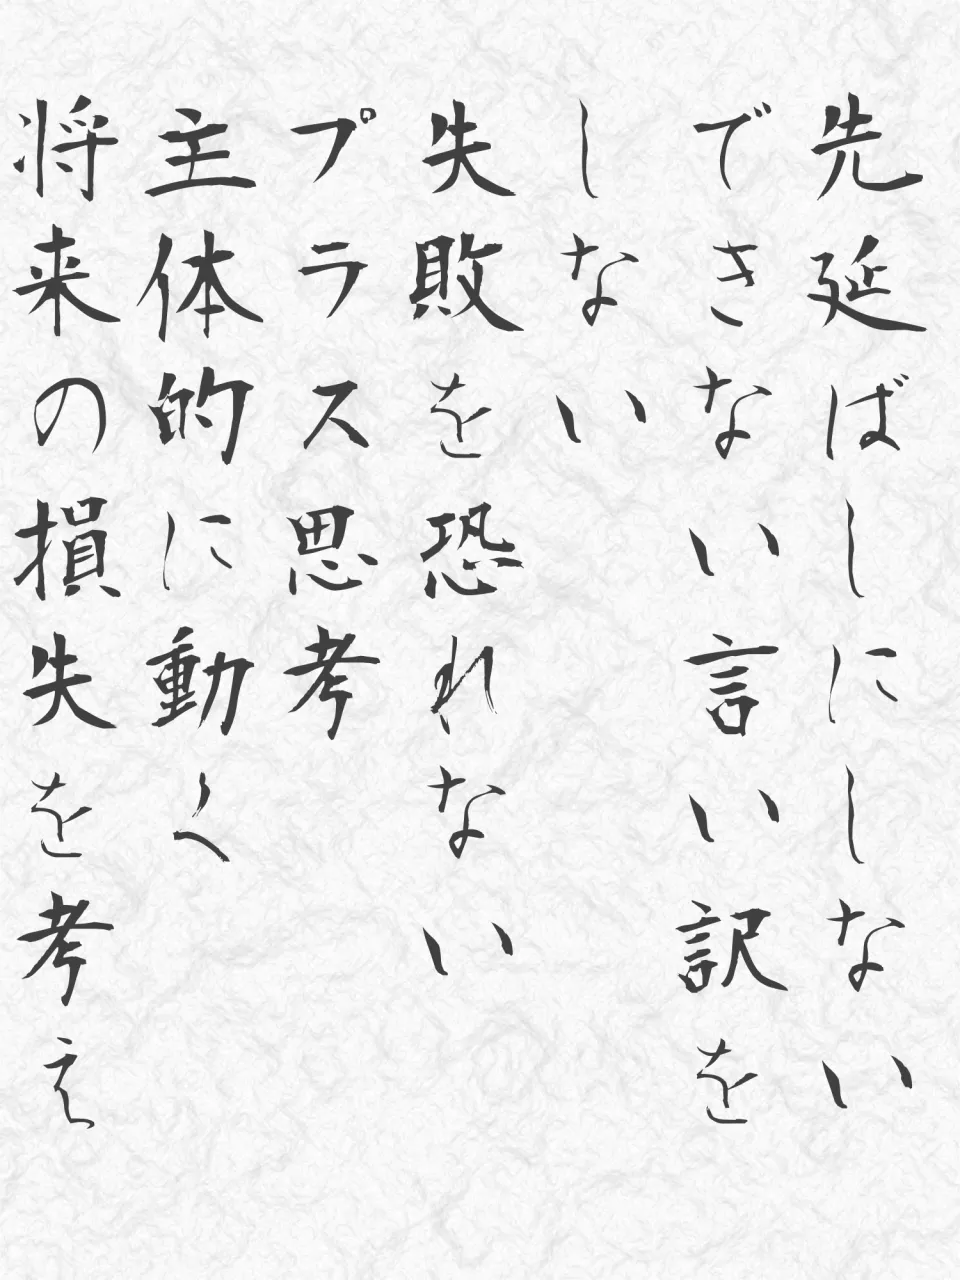 先延ばしにしない
できない言い訳を
しない
失敗を恐れない
プラス思考
主体的に動く
将来の損失を考え